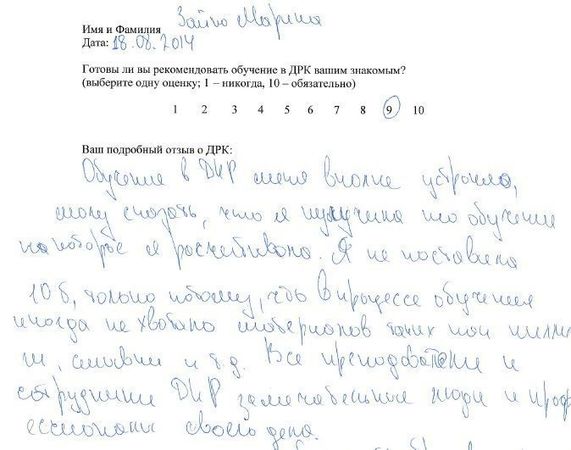 Имя и Фамилия Зайко Марина
Дата: 18.08.2014
Готовы ли вы рекомендовать обучение в ДРК вашим знакомым?
(выберите одну оценку; 1 – никогда, 10 – обязательно)
1 2 3 4 5 6 7 8 9 10
Ваш подробный отзыв о ДРК:
Обучение в ДКР меня вполне устроило,
могу сказать, что я получила то обучение
на которое я рассчитывала. Я не поставила
10 б, только потому, что в процессе обучения
иногда не хватало материалов таких как
ш, смывки и т.д. Все преподаватели и
сотрудники ДКР замечательные люди и проф
ессионалы своего дела.